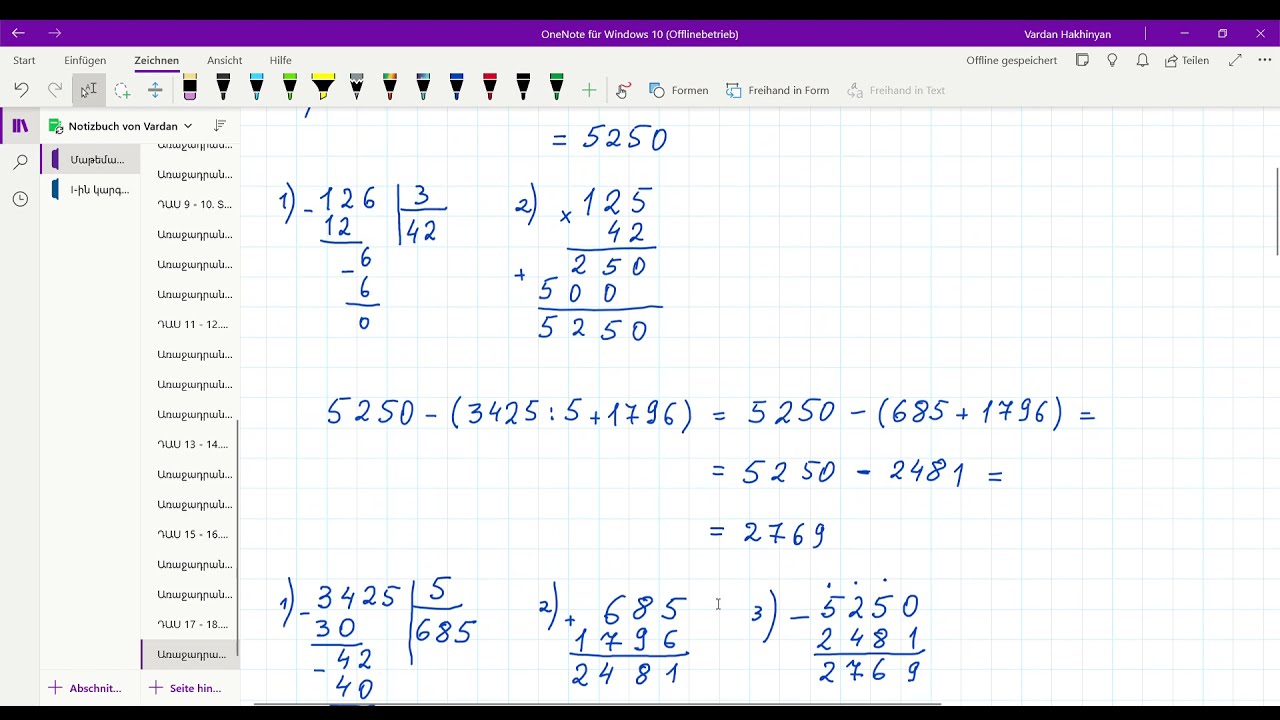 OneNote für Windows 10 (Offlinebetrieb)
Vardan Hakhinyan
Start Einfügen Zeichnen Ansicht Hilfe
Offline gespeichert Teilen
Formen Freihand in Form Freihand in Text
Notizbuch von Vardan
Մաթեմա...
I-ին կարգ...
Առաջադրան...
Առաջադրան...
ԴԱՍ 9 - 10. Տ...
Առաջադրան...
Առաջադրան...
Առաջադրան...
ԴԱՍ 11 - 12....
Առաջադրան...
Առաջադրան...
Առաջադրան...
ԴԱՍ 13 - 14....
Առաջադրան...
Առաջադրան...
ԴԱՍ 15 - 16....
Առաջադրան...
Առաջադրան...
ԴԱՍ 17 - 18....
Առաջադրա...
+ Abschnit...
+ Seite hin...
= 5250
1) - 126 | 3
12 | 42
- 6
6
0
2) x 125
42
+ 250
500
5250
5250 - (3425 : 5 + 1796) = 5250 - (685 + 1796) =
= 5250 - 2481 =
= 2769
1) - 3425 | 5
30 | 685
- 42
40
2) + 685
1796
2481
3) - 5250
2481
2769